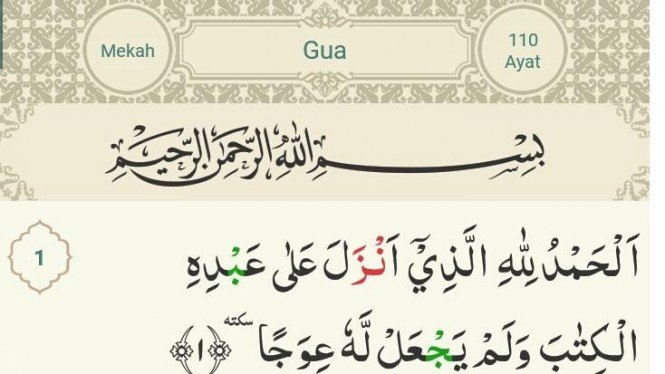 Mekah
Gua
110
Ayat
بِسْمِ اللّٰهِ الرَّحْمٰنِ الرَّحِيْمِ
1
اَلْحَمْدُ لِلّٰهِ الَّذِيْٓ اَنْزَلَ عَلٰى عَبْدِهِ
الْكِتٰبَ وَلَمْ يَجْعَلْ لَّهٗ عِوَجًا ۜسكته ﴿١﴾